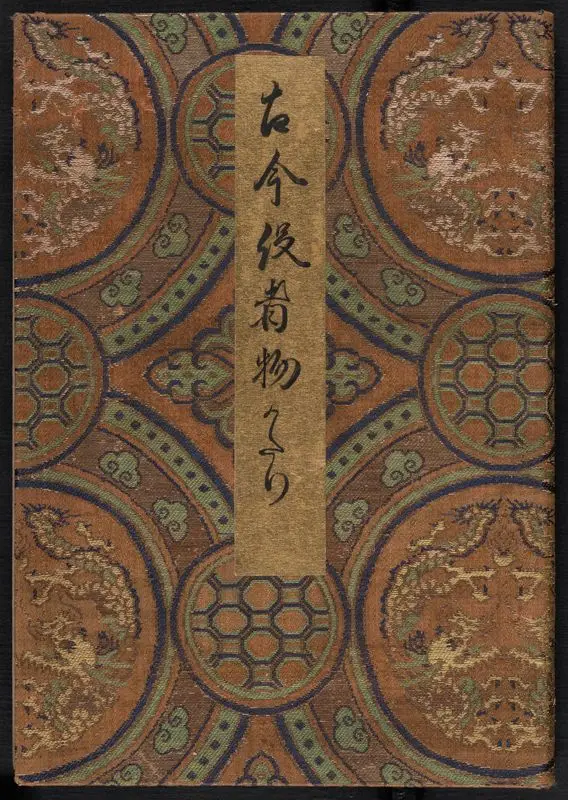 古今役者物かたり